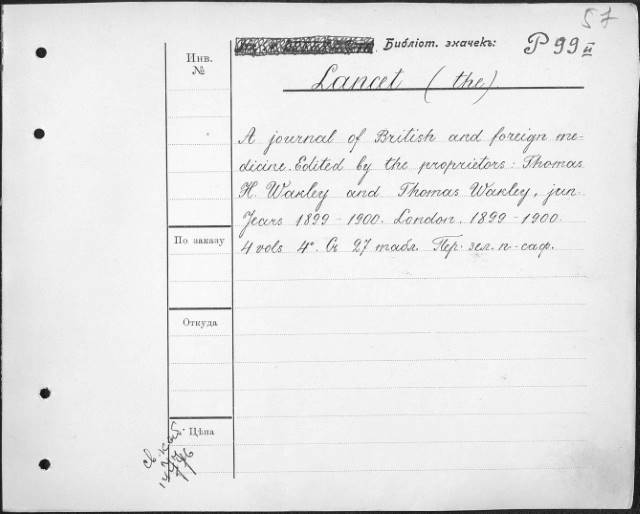 57
Инв.
№
Библіот. значекъ: P 99 II
Lancet (the)
A journal of British and foreign me-
dicine. Edited by the proprietors: Thomas
H. Wakley and Thomas Wakley, jun.
Years 1899-1900. London. 1899-1900.
По заказу
4 vols 4°. Съ 27 табл. Пер. зел. п-саф.
Откуда
Цѣна